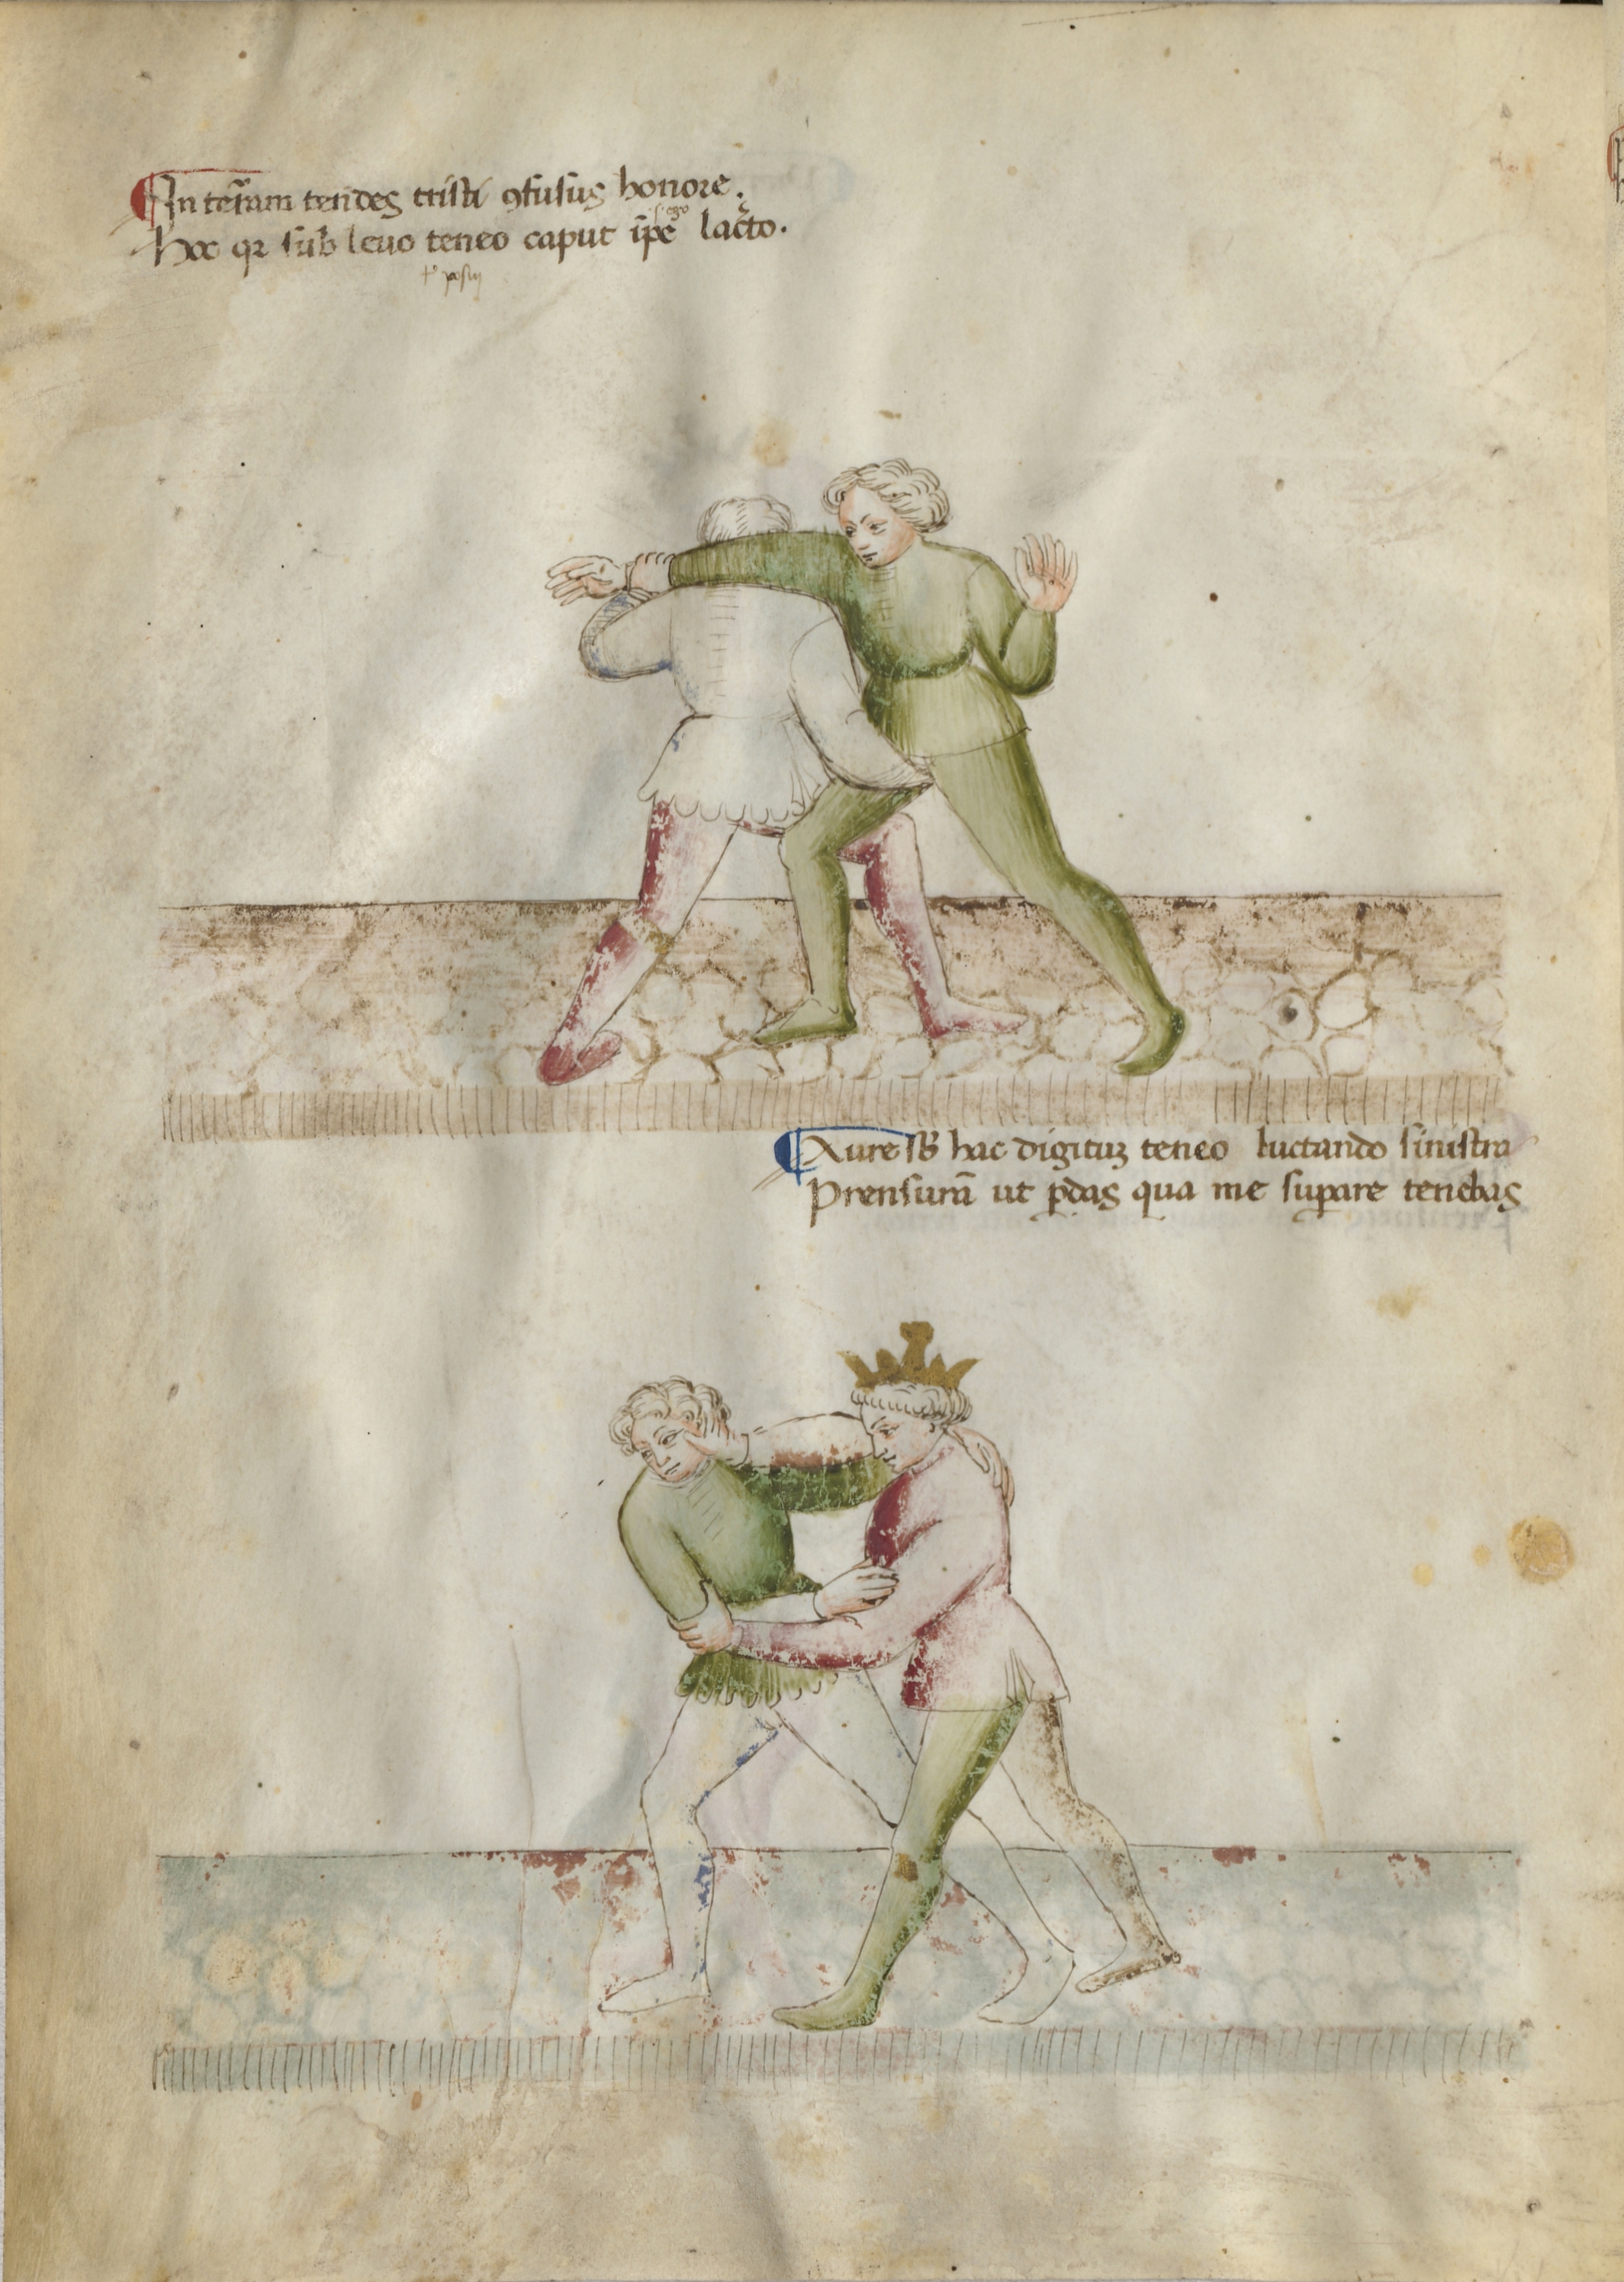 In terram tendes tristi 9fusus honore.
s. ego
Hoc qr sub leuo teneo caput ip̄e lac̄to.
t' posui
Aure sb̄ hac digituꝫ teneo luctando sinistra
Prensurā ut ꝑdas qua me suꝑare tenebas